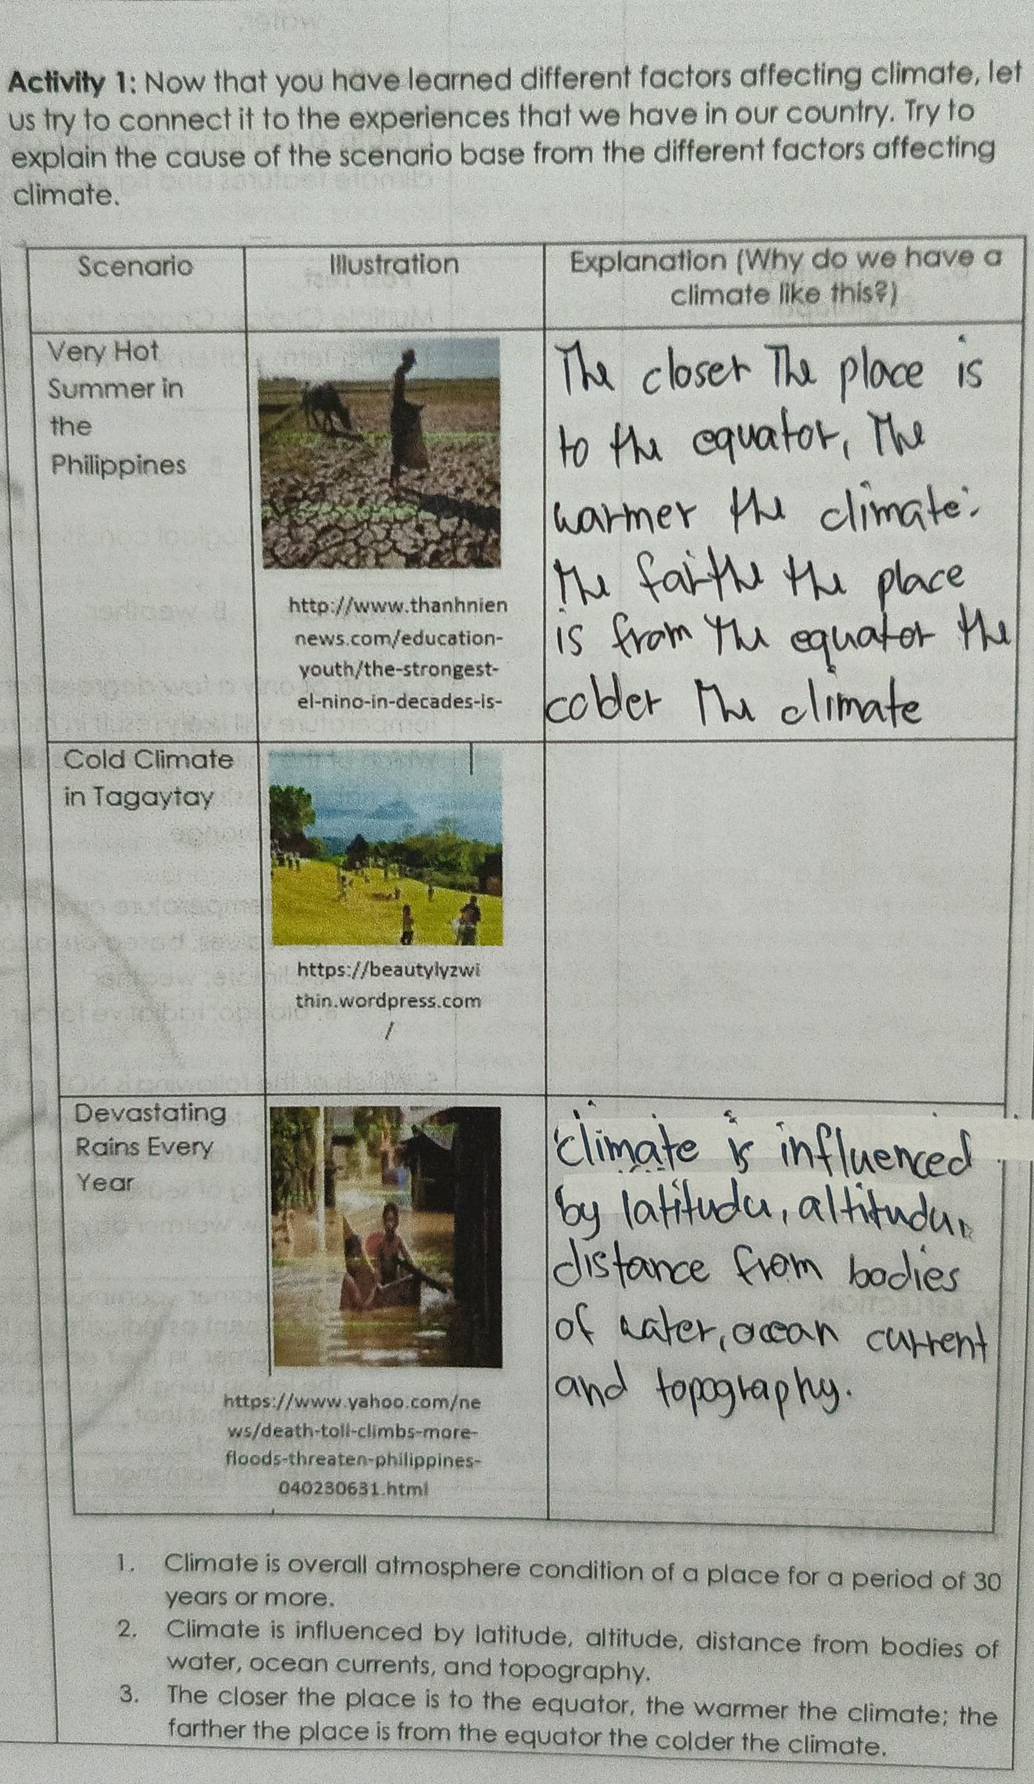 Activity 1: Now that you have learned different factors affecting climate, let
us try to connect it to the experiences that we have in our country. Try to
explain the cause of the scenario base from the different factors affecting
climate.
Scenario
Illustration
Explanation (Why do we have a
climate like this?)
Very Hot
Summer in
the
Philippines
http://www.thanhnien
news.com/education-
youth/the-strongest-
el-nino-in-decades-is-
The closer The place is
to the equator, The
warmer the climate:
The fairthe the place
is from the equator the
colder The climate
Cold Climate
in Tagaytay
https://beautylyzwi
thin.wordpress.com
/
Devastating
Rains Every
Year
https://www.yahoo.com/ne
ws/death-toll-climbs-more-
floods-threaten-philippines-
040230631.html
climate is influenced
by latitude, altitude,
distance from bodies
of water, ocean current
and topography.
1. Climate is overall atmosphere condition of a place for a period of 30
years or more.
2. Climate is influenced by latitude, altitude, distance from bodies of
water, ocean currents, and topography.
3. The closer the place is to the equator, the warmer the climate; the
farther the place is from the equator the colder the climate.